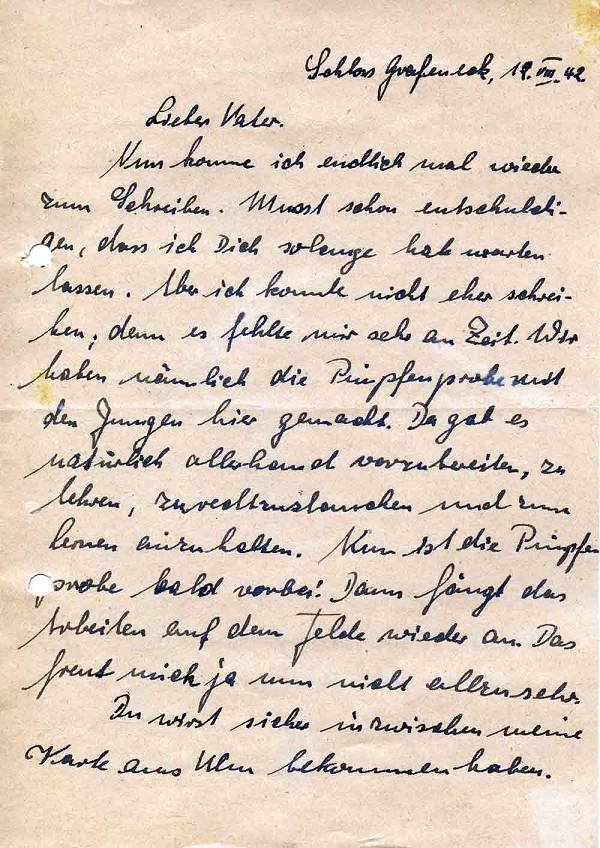 Schloss Grafeneck, 12. VIII. 42.
Lieber Vater.
Nun komme ich endlich mal wieder
zum Schreiben. Musst schon entschuldi-
gen, dass ich Dich solange hab warten
lassen. Aber ich konnte nicht eher schrei-
ben, denn es fehlte mir sehr an Zeit. Wir
haben nämlich die Pimpfenprobe mit
den Jungen hier gemacht. Da gab es
natürlich allerhand vorzubereiten, zu
lehren, zurechtzustauchen und zum
lernen anzuhalten. Nun ist die Pimpfen
probe bald vorbei! Dann fängt das
Arbeiten auf dem Felde wieder an. Das
freut mich ja nun nicht allzusehr.
Du wirst sicher inzwischen meine
Karte aus Ulm bekommen haben.